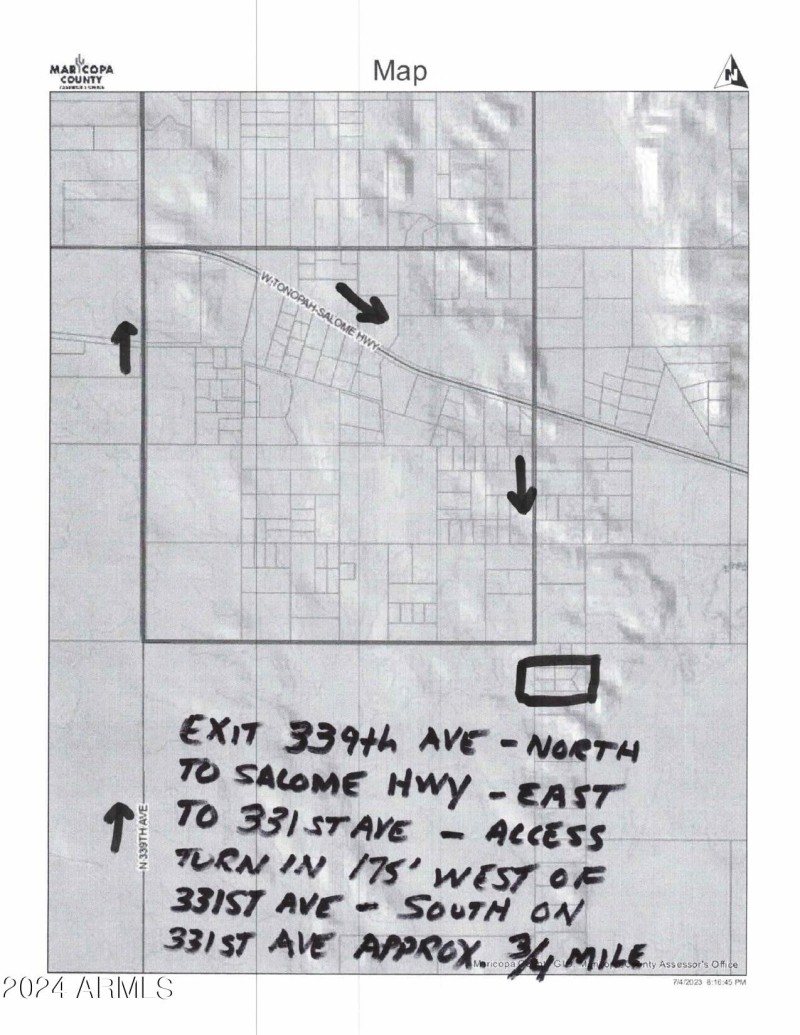 MARICOPA
COUNTY
Map
N
W TONOPAH-SALOME HWY
EXIT 339th AVE - NORTH
TO SALOME HWY - EAST
TO 331ST AVE - ACCESS
TURN IN 175' WEST OF
331ST AVE - SOUTH ON
331ST AVE APPROX 3/4 MILE
N 339TH AVE
Maricopa County Assessor's Office
7/4/2023 8:16:45 PM
2024 ARMLS